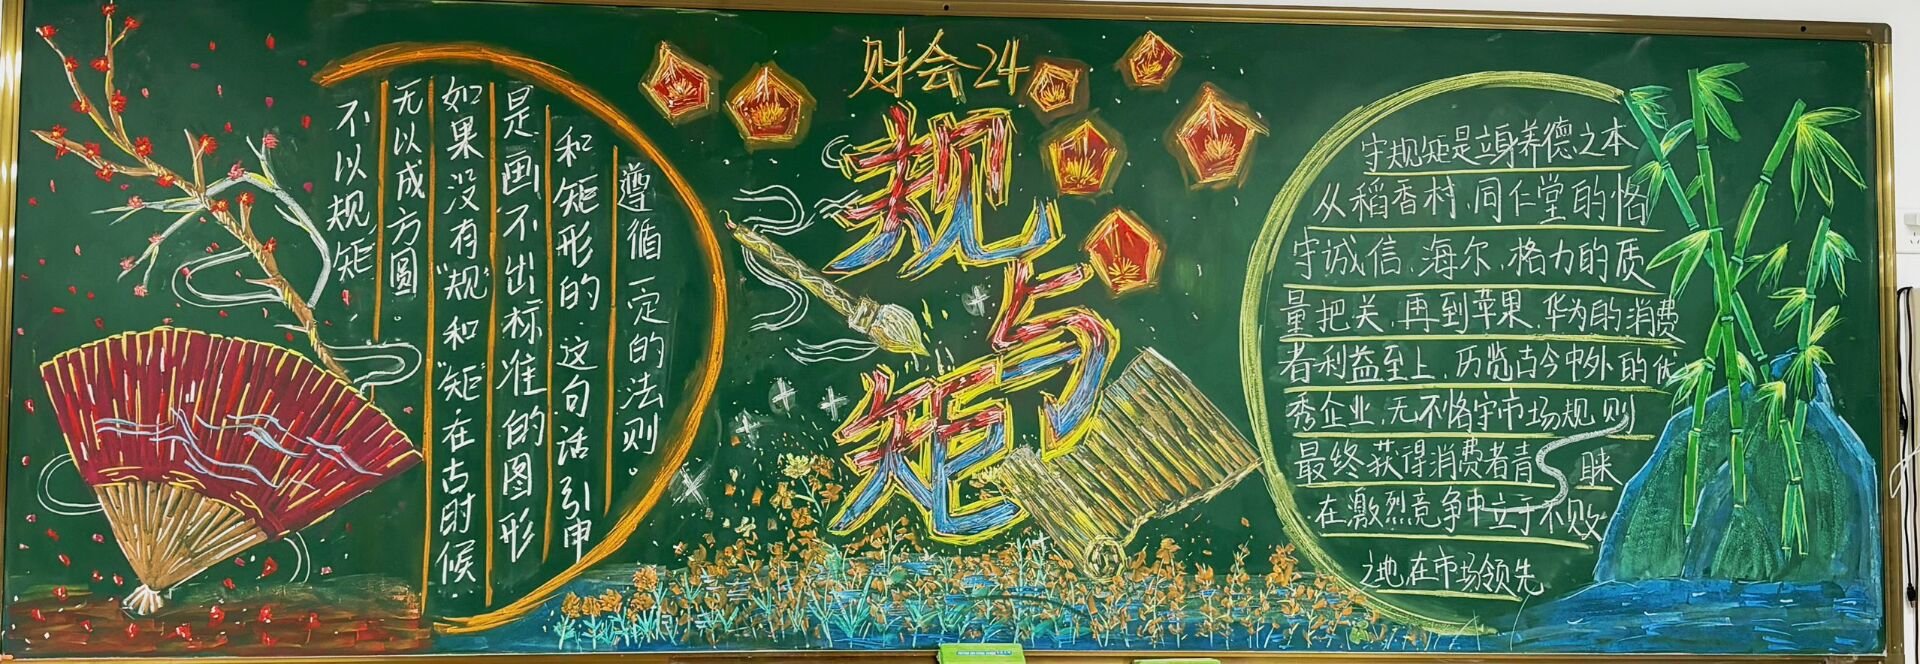 财会24
规与矩
不以规矩,
无以成方圆。
如果没有“规”和“矩”在古时候
是画不出标准的图形
和矩形的.这句话引申
遵循一定的法则。
守规矩是立身养德之本
从稻香村、同仁堂的恪
守诚信,海尔、格力的质
量把关,再到苹果、华为的消费
者利益至上,历览古今中外的优
秀企业,无不恪守市场规则
最终获得消费者青睐
在激烈竞争中立于不败
之地,在市场领先